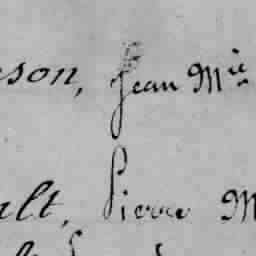 son, Jean Mie
ult, Pierre M